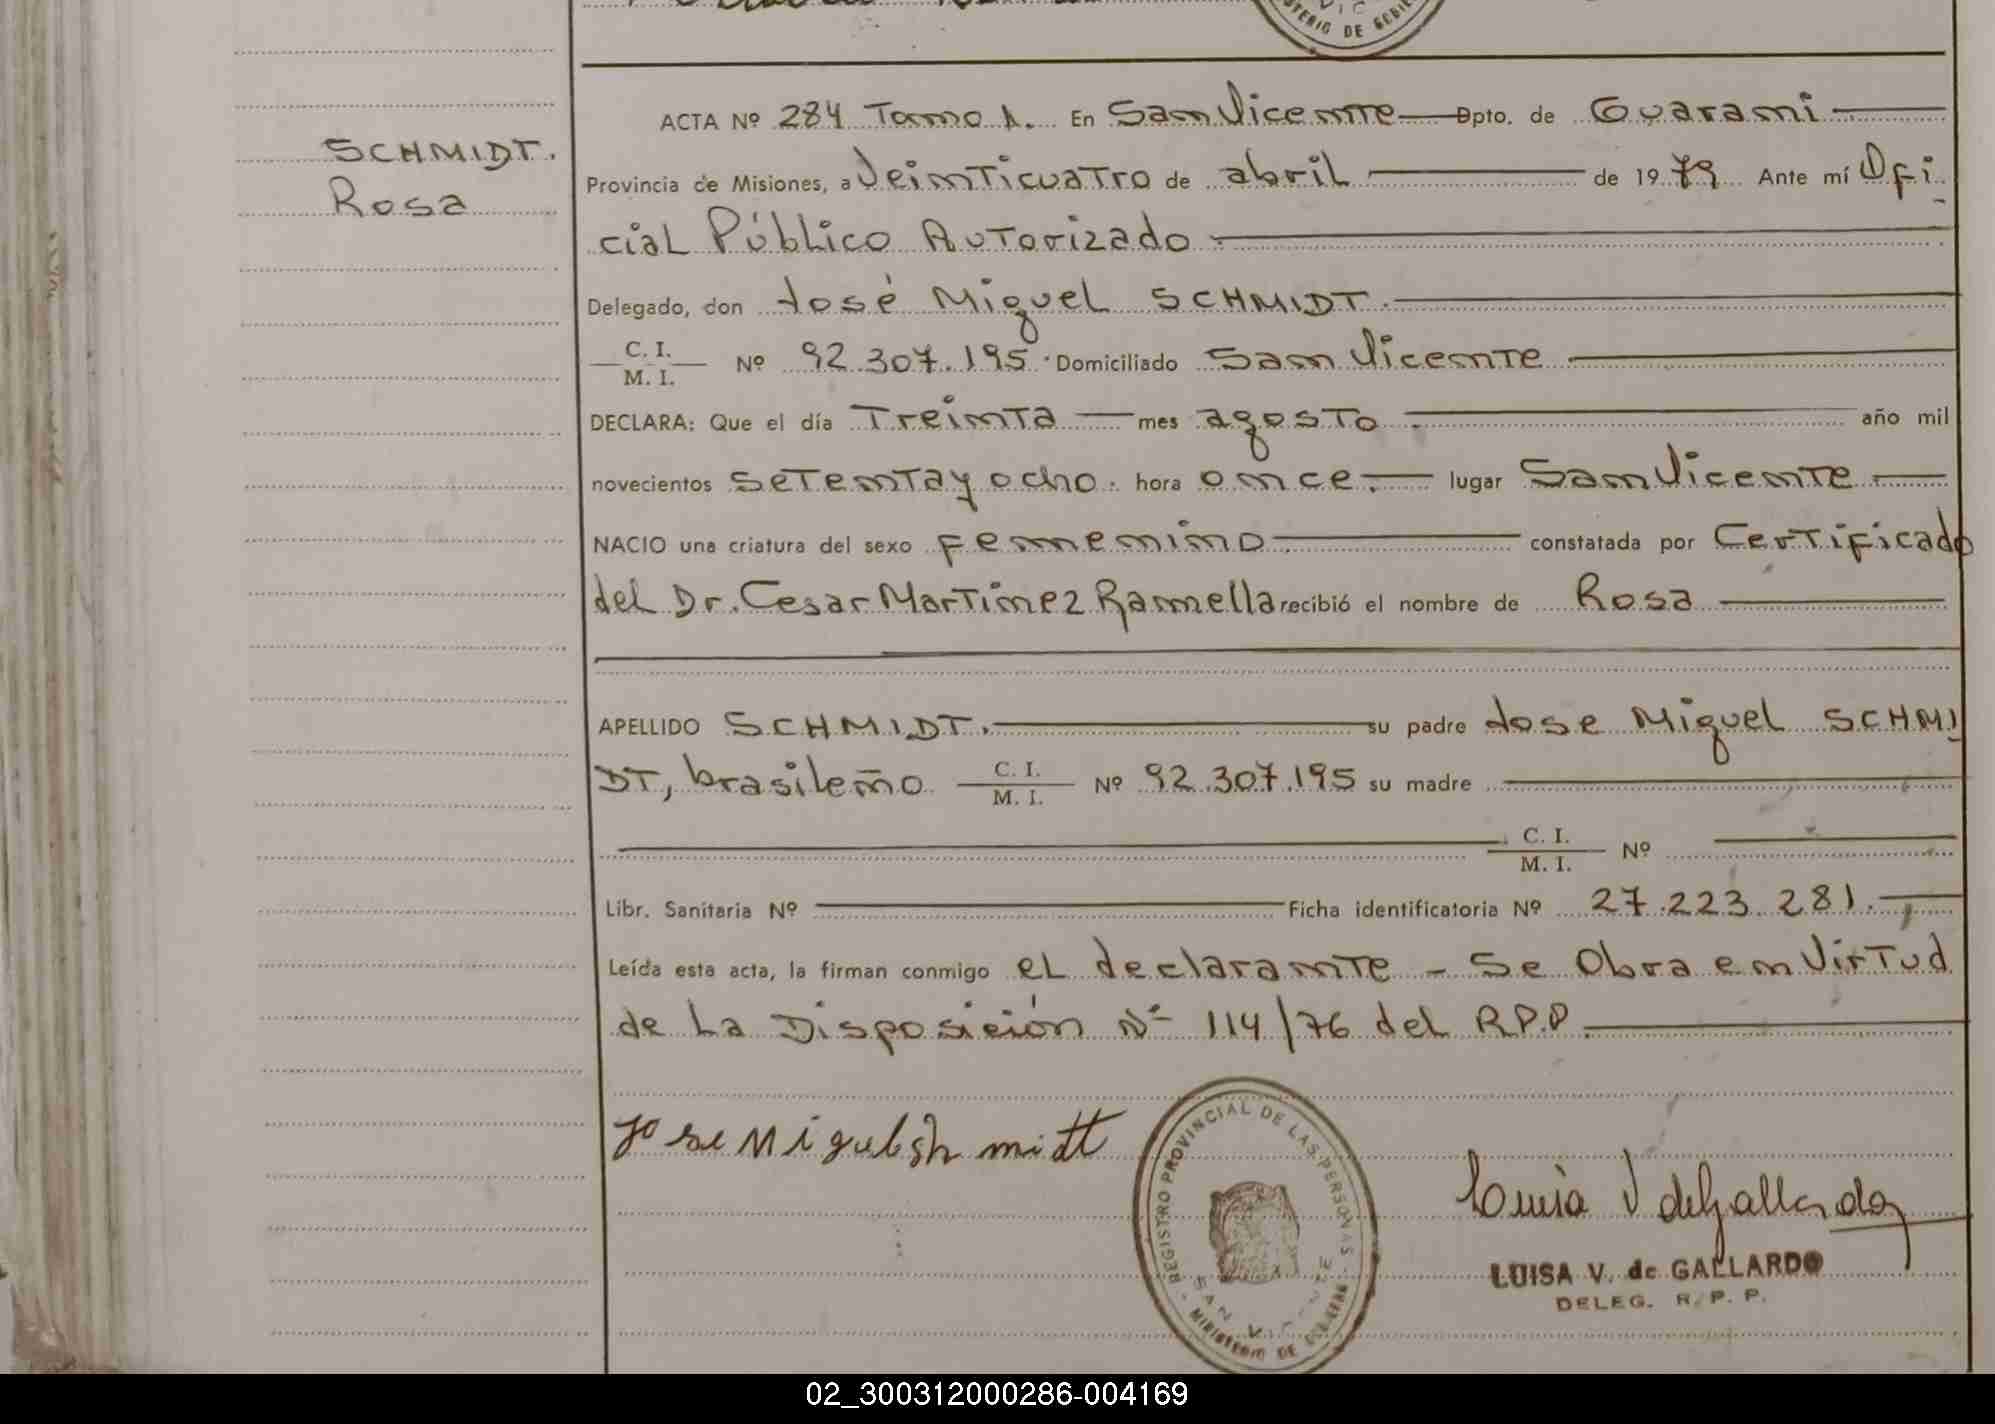 DE GOBIE
SCHMIDT.
Rosa
ACTA Nº 284 Tomo 1. En San Vicente Dpto. de Guarani
Provincia de Misiones, a Veinticuatro de abril de 1979 Ante mí Ofi
cial Público Autorizado
Delegado, don José Miguel SCHMIDT.
C. I.
M. I. Nº 92.307.195. Domiciliado San Vicente
DECLARA: Que el día Treinta mes agosto año mil
novecientos setenta y ocho. hora once. lugar San Vicente
NACIO una criatura del sexo femenino constatada por Certificado
del Dr. Cesar Martinez Ramella recibió el nombre de Rosa
APELLIDO SCHMIDT. su padre Jose Miguel SCHMI
DT, brasileño C. I.
M. I. Nº 92.307.195 su madre
C. I.
M. I. Nº
Libr. Sanitaria Nº Ficha identificatoria Nº 27.223.281.
Leída esta acta, la firman conmigo el declarante - Se Obra en Virtud
de La Disposición Nº 114/76 del R.P.P.
REGISTRO PROVINCIAL DE LAS PERSONAS
SAN VICENTE
MINISTERIO DE GOBIERNO
LUISA V. de GALLARDO
DELEG. R. P. P.
02_300312000286-004169